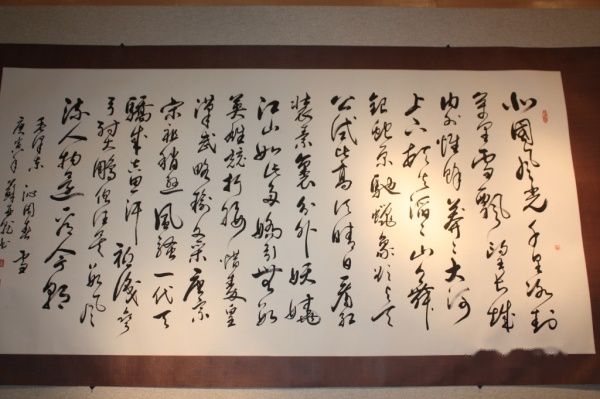 北國風光千里冰封
萬里雪飄望長城
内外惟餘莽莽大河
上下頓失滔滔山舞
銀蛇原馳蠟象欲與天
公試比高須晴日看紅
裝素裹分外妖嬈
江山如此多嬌引無數
英雄競折腰惜秦皇
漢武略輸文采唐宗
宋祖稍遜風騷一代天
驕成吉思汗祇識彎
弓射大鵰俱往矣數風
流人物還看今朝
毛澤東 沁園春 雪
庚寅年 書